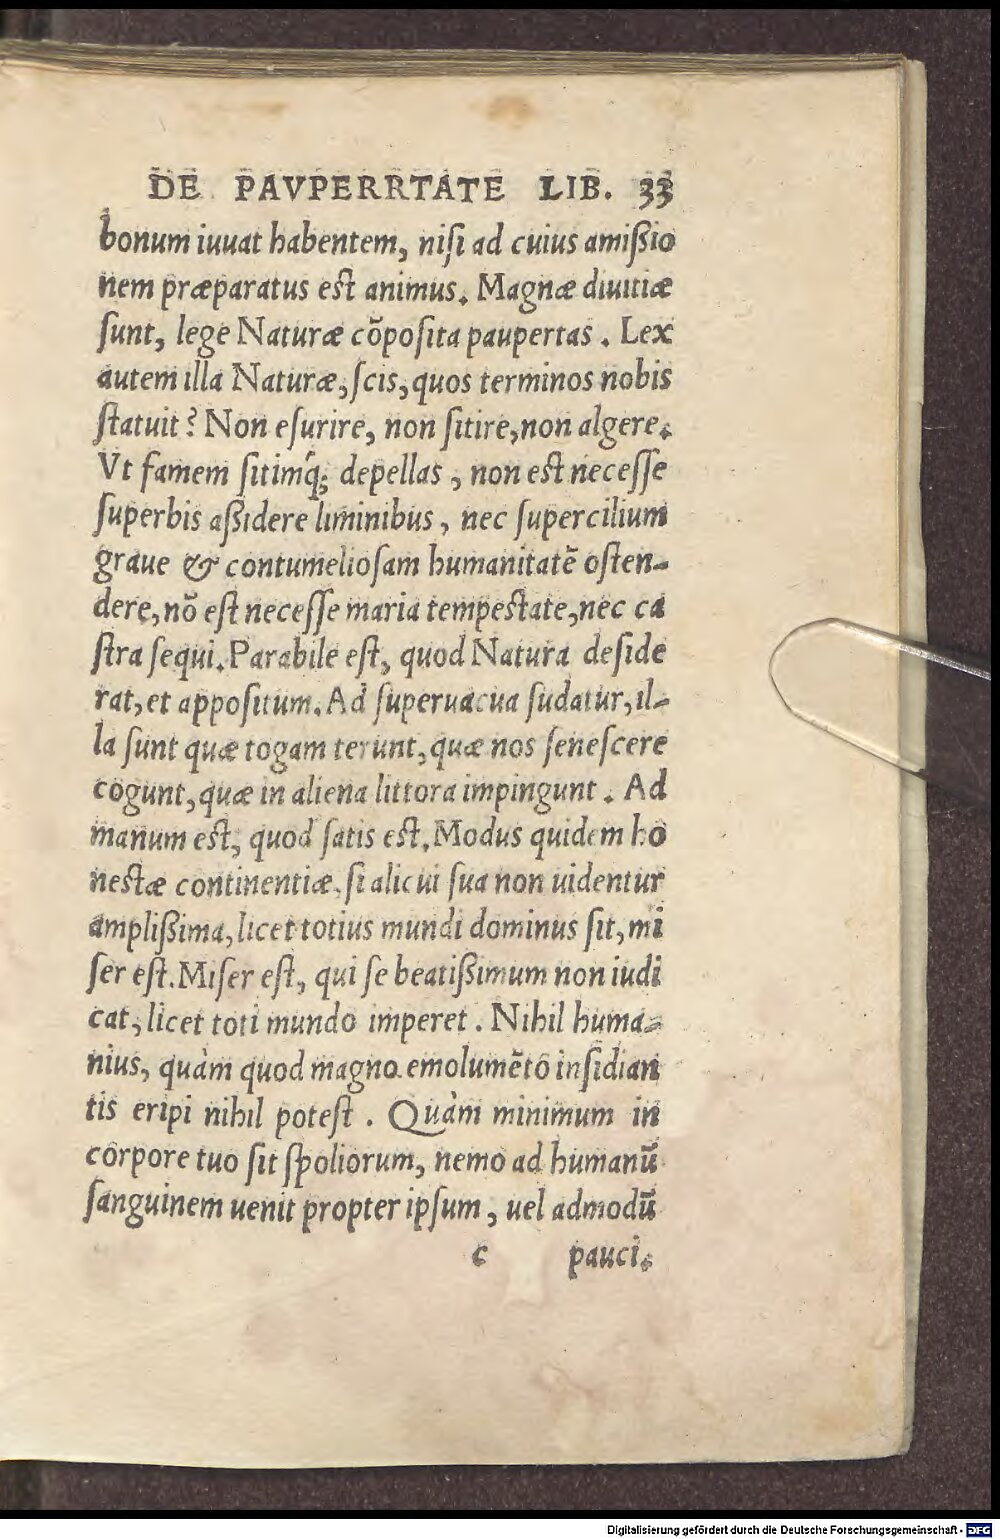 DE PAVPERRTATE LIB. 33
bonum iuuat habentem, niſi ad cuius amiſsio
nem præparatus eſt animus. Magnæ diuitiæ
ſunt, lege Naturæ cõpoſita paupertas. Lex
autem illa Naturæ, ſcis, quos terminos nobis
ſtatuit? Non eſurire, non ſitire, non algere.
Vt famem ſitimq́; depellas, non eſt neceſſe
ſuperbis aſsidere liminibus, nec ſupercilium
graue & contumelioſam humanitatẽ oſten-
dere, nõ eſt neceſſe maria tempeſtate, nec ca
ſtra ſequi. Parabile eſt, quod Natura deſide
rat, et appoſitum. Ad ſuperuacua ſudatur, il-
la ſunt quæ togam terunt, quæ nos ſeneſcere
cogunt, quæ in aliena littora impingunt. Ad
manum eſt, quod ſatis eſt. Modus quidem ho
neſtæ continentiæ, ſi alicui ſua non uidentur
ampliſsima, licet totius mundi dominus ſit, mi
ſer eſt. Miſer eſt, qui ſe beatiſsimum non iudi
cat, licet toti mundo imperet. Nihil huma-
nius, quàm quod magno emolumẽto inſidian
tis eripi nihil poteſt. Quàm minimum in
corpore tuo ſit ſpoliorum, nemo ad humanũ
ſanguinem uenit propter ipſum, uel admodũ
c pauci.
Digitalisierung gefördert durch die Deutsche Forschungsgemeinschaft - DFG